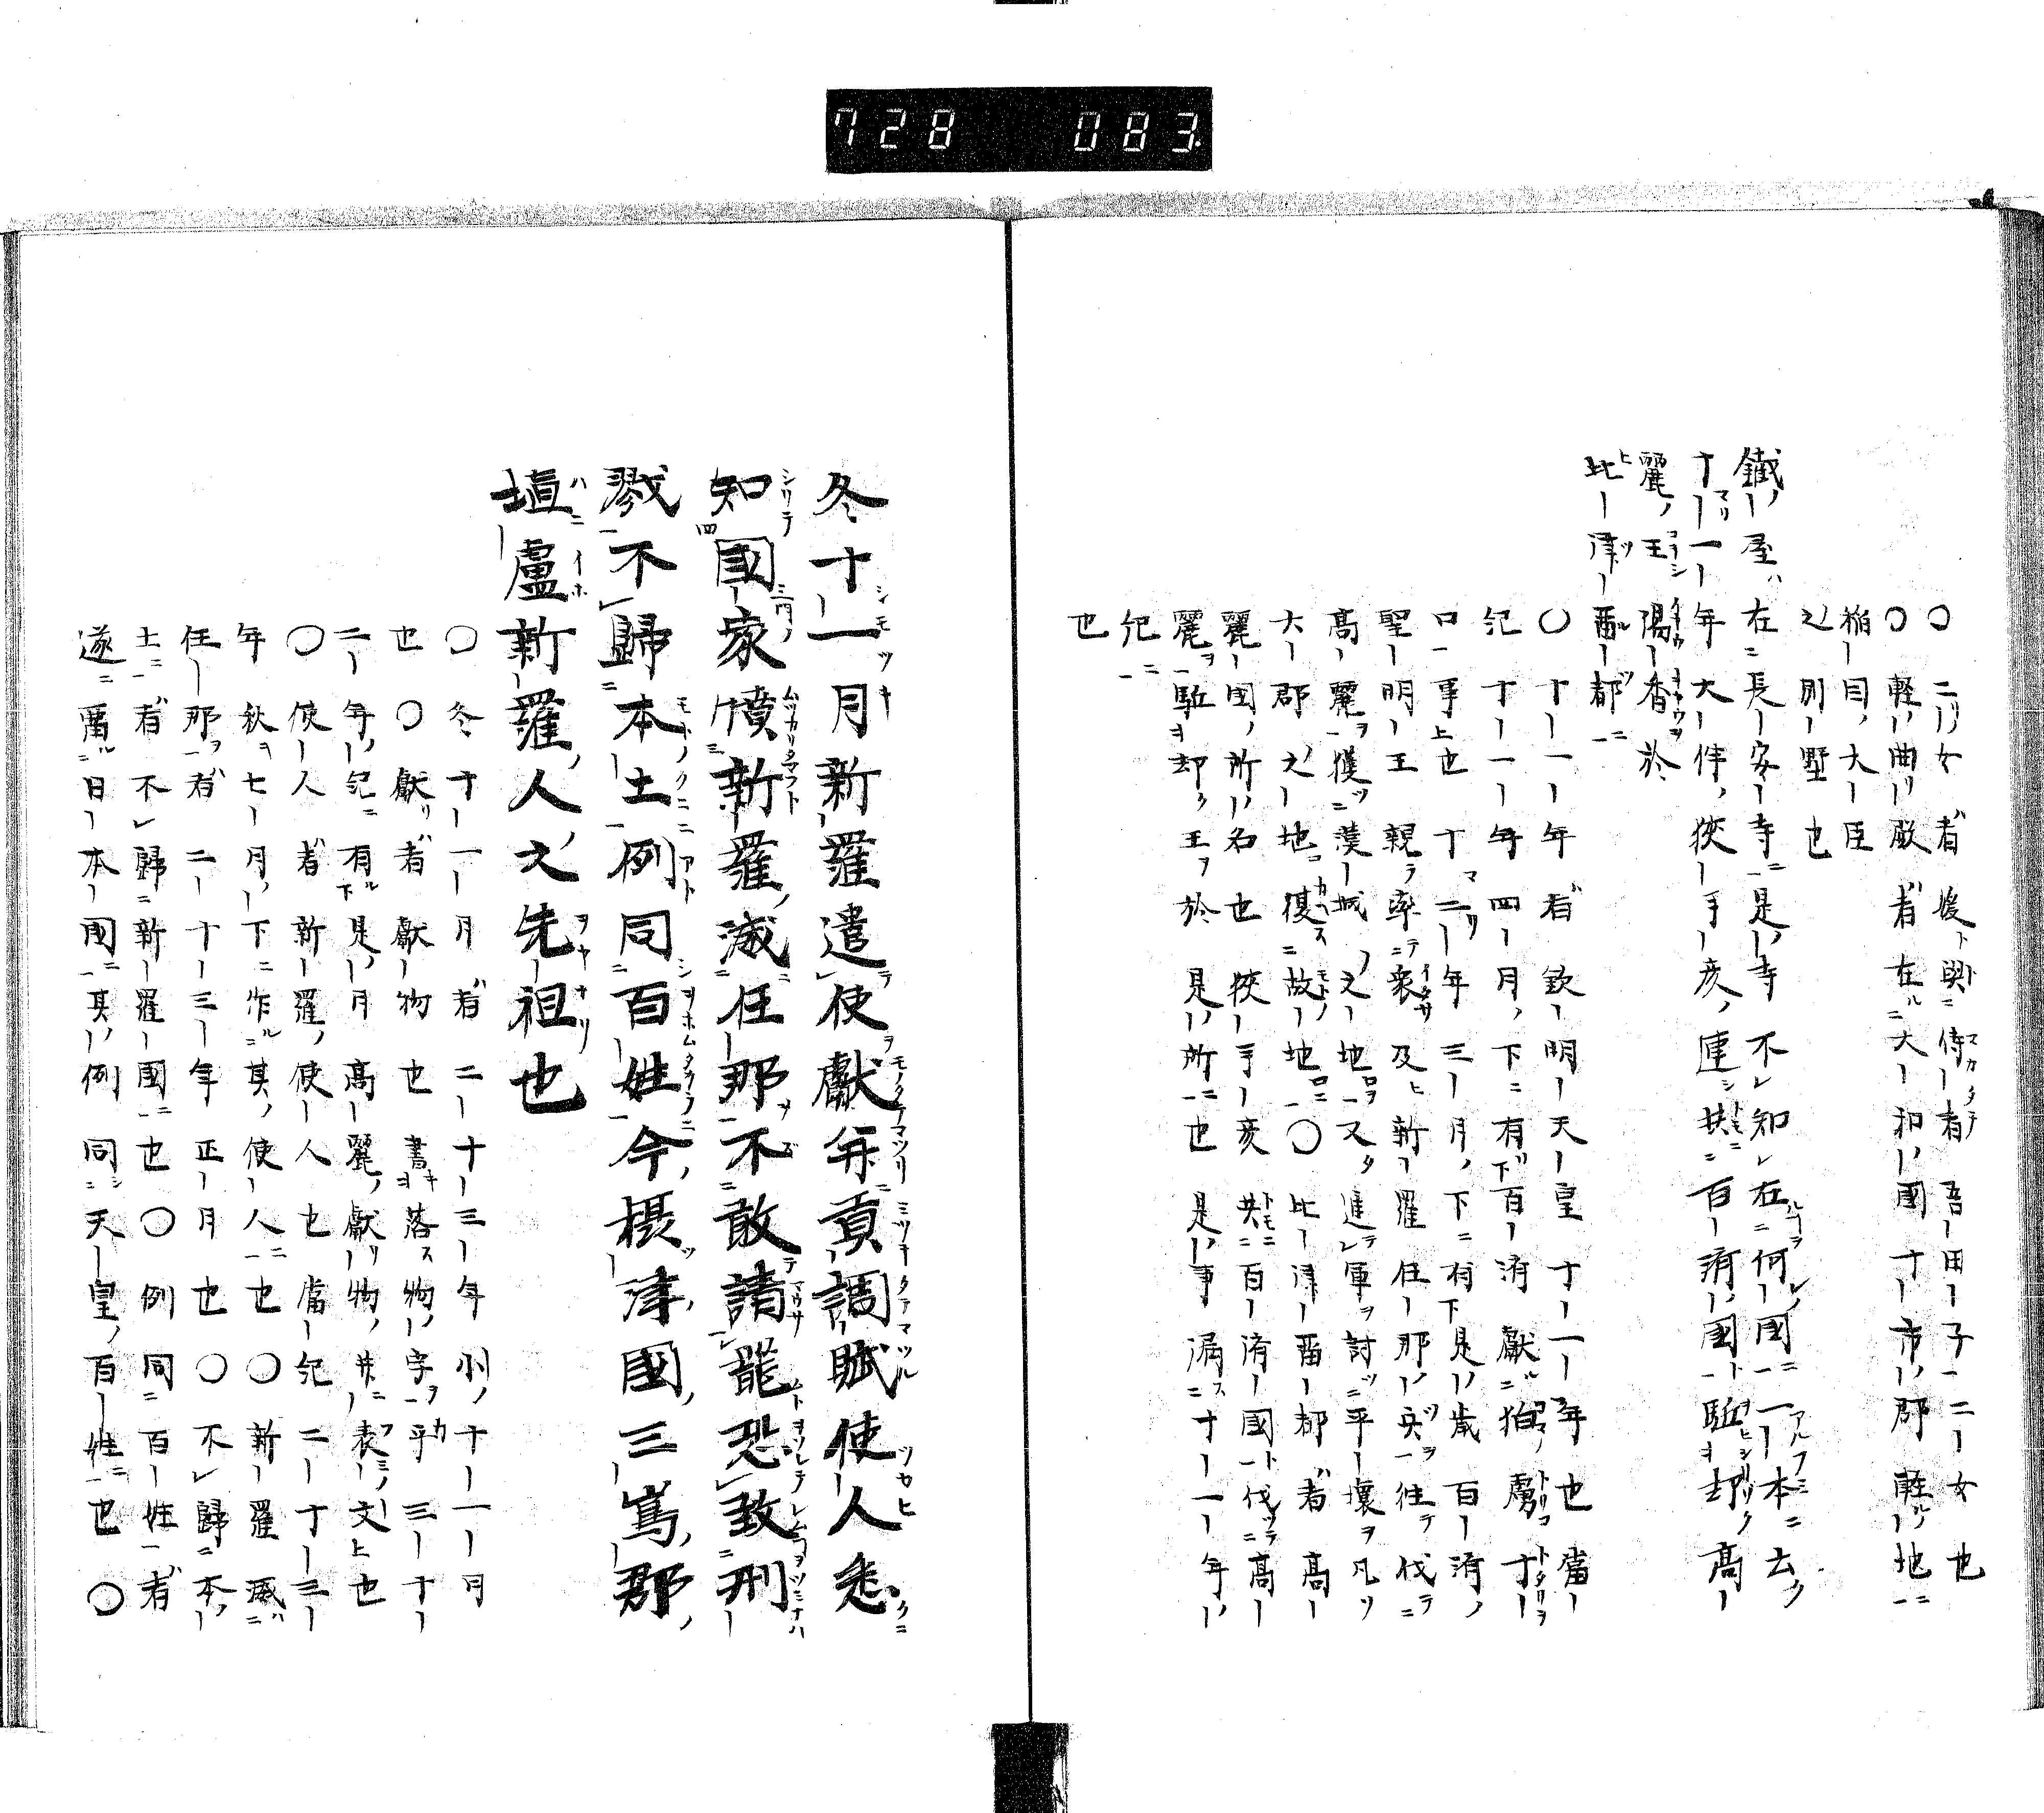 728 083
〇二女者媛與侍者吾田子二女也
〇軽曲殿者在大和國十市郡軽地
稲目大臣
之別墅也
鐵屋在長安寺是寺不知在何國一本云
十一年大伴狭手彦連共百濟國駈却高
麗王陽香於
比津留都
〇十一年者欽明天皇十一年也當
紀十一年四月下有百濟獻狛虜十
口事也十二年三月下有是歳百濟
聖明王親率衆及新羅任那兵往伐
高麗獲漢城之地又進軍討平壌凡
六郡之地復故地〇比津留都者高
麗國所名也狭手彦共百濟國伐高
麗駈却王於是所也是事漏十一年
紀
也
冬十一月新羅遣使獻并貢調賦使人悉
知國家憤新羅滅任那不敢請罷恐致刑
戮不歸本土例同百姓今摂津國三嶌郡
埴廬新羅人之先祖也
〇冬十一月者二十三年冬十一月
也〇獻者獻物也書落物字乎三十
二年紀有是月高麗獻物并表文也
〇使人者新羅使人也當紀二十三
年秋七月下作其使人也〇新羅滅
任那者二十三年正月也〇不歸本
土者不歸新羅國也〇例同百姓者
遂留日本國其例同天皇百姓也〇